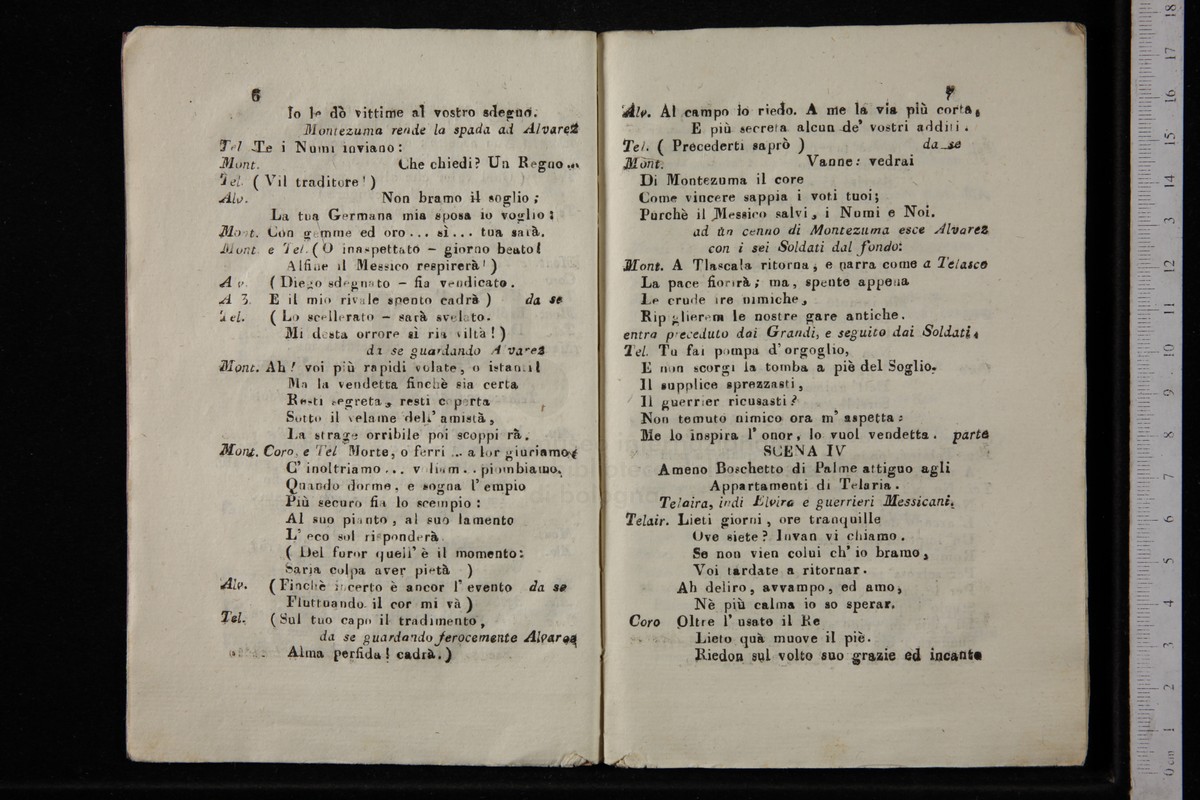 6
Io le dò vittime al vostro sdegno.
Montezuma rende la spada ad Alvarez
Tel Te i Numi inviano:
Mont. Che chiedi? Un Regno ...
Tel. ( Vil traditore! )
Alv. Non bramo il soglio ;
La tua Germana mia sposa io voglio:
Mont. Con gemme ed oro ... sì ... tua sarà.
Mont e Tel. ( O inaspettato – giorno beato!
Alfine il Messico respirerà! )
A v. ( Diego sdegnato – fia vendicato.
A 3. E il mio rivale spento cadrà ) da se
Tel. ( Lo scellerato – sarà svelato.
Mi desta orrore sì ria viltà ! )
da se guardando A varez
Mont. Ah! voi più rapidi volate, o istanti!
Ma la vendetta finchè sia certa
Resti segreta, resti coperta
Sotto il velame dell' amistà,
La strage orribile poi scoppi rà.
Mont. Coro, e Tel Morte, o ferri ... a lor giuriamo:
C' inoltriamo ... v liam . . piombiamo.
Quando dorme, e sogna l' empio
Più securo fia lo scempio :
Al suo pianto, al suo lamento
L' eco sol risponderà
( Del furor quell' è il momento:
Saria colpa aver pietà )
Alv. ( Finchè incerto è ancor l' evento da se
Fluttuando il cor mi và )
Tel. ( Sul tuo capo il tradimento,
da se guardando ferocemente Alvarez
Alma perfida! cadrà. )
7
Alv. Al campo io riedo. A me la via più corta,
E più secreta alcun de' vostri additi .
Tel. ( Precederti saprò ) da se
Mont. Vanne: vedrai
Di Montezuma il core
Come vincere sappia i voti tuoi;
Purchè il Messico salvi, i Numi e Noi.
ad un cenno di Montezuma esce Alvarez
con i sei Soldati dal fondo:
Mont. A Tlascala ritorna, e narra come a Telasco
La pace fiorirà; ma, spente appena
Le crude ire nimiche,
Rip glierem le nostre gare antiche.
entra preceduto dai Grandi, e seguito dai Soldati.
Tel. Tu fai pompa d' orgoglio,
E non scorgi la tomba a piè del Soglio.
Il supplice sprezzasti,
Il guerrier ricusasti?
Non temuto nimico ora m' aspetta:
Me lo inspira l' onor, lo vuol vendetta. parte
SCENA IV
Ameno Boschetto di Palme attiguo agli
Appartamenti di Telaria.
Telaira, indi Elvira e guerrieri Messicani.
Telair. Lieti giorni, ore tranquille
Ove siete? Invan vi chiamo.
Se non vien colui ch' io bramo,
Voi tardate a ritornar.
Ah deliro, avvampo, ed amo,
Nè più calma io so sperar.
Coro Oltre l' usato il Re
Lieto quà muove il piè.
Riedon sul volto suo grazie ed incanto